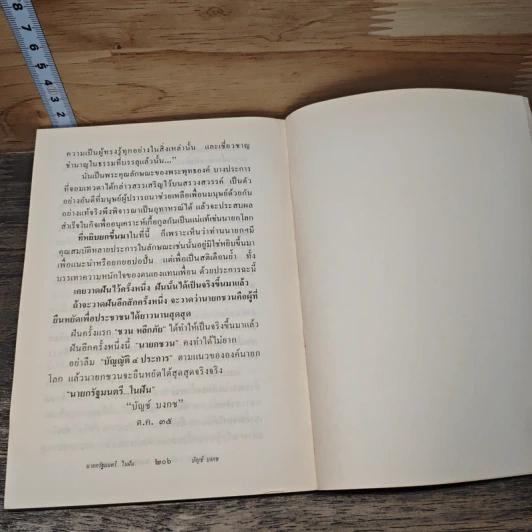 ความเป็นผู้ทรงรู้ทุกอย่างในสิ่งเหล่านั้น และเชี่ยวชาญ
ชำนาญในธรรมที่บรรลุแล้วนั้น..."
นันเป็นพระคุณลักษณะของพระพุทธองค์ บางประการ
ที่จอมเทวดาได้กล่าวสรรเสริญไว้บนสรวงสวรรค์ เป็นตัว
อย่างอันดีที่มนุษย์ผู้ปรารถนาช่วยเหลือเพื่อนมนุษย์ด้วยกัน
อย่างแท้จริงพึงพิจารณาเป็นอุทาหรณ์ได้ แล้วจะประสบผล
สำเร็จในกิจเพื่ออนุเคราะห์เกื้อกูลกันเป็นแน่แท้เช่นนายกโลก
ที่หยิบยกขึ้นมาในที่นี้ ก็เพราะเห็นว่าท่านนายกฯมี
คุณสมบัติหลายประการในลักษณะเช่นนั้นอยู่มิใช่หยิบขึ้นมา
เพื่อแนะนำหรือยกยอปอปั้น แต่เพื่อเป็นสติเตือนย้ำ ทั้ง
บรรเทาความหนักใจของตนเองแทนเพื่อน ด้วยประการฉะนี้
เคยวาดฝันไว้ครั้งหนึ่ง ฝันนั้นได้เป็นจริงขึ้นมาแล้ว
ถ้าจะวาดฝันอีกสักครั้งหนึ่ง จะวาดว่านายกชวนคือผู้ที่
ยืนหยัดเพื่อประชาชนได้ยาวนานสุดสุด
ฝันครั้งแรก "ชวน หลีกภัย" ได้ทำให้เป็นจริงขึ้นมาแล้ว
ฝันอีกครั้งหนึ่งนี้ "นายกชวน" คงทำได้ไม่ยาก
อย่าลืม "บัญญัติ ๔ ประการ" ตามแนวขององค์นายก
โลก แล้วนายกชวนจะยืนหยัดได้สุดสุดจริงจริง
"นายกรัฐมนตรี..ในฝัน"
"บัญช์ บงกช"
ต.ค. ๓๕
นายกรัฐมนตรี..ในฝัน ๒๐๖ บัญช์ บงกช
8 7 6 5 4 3 2